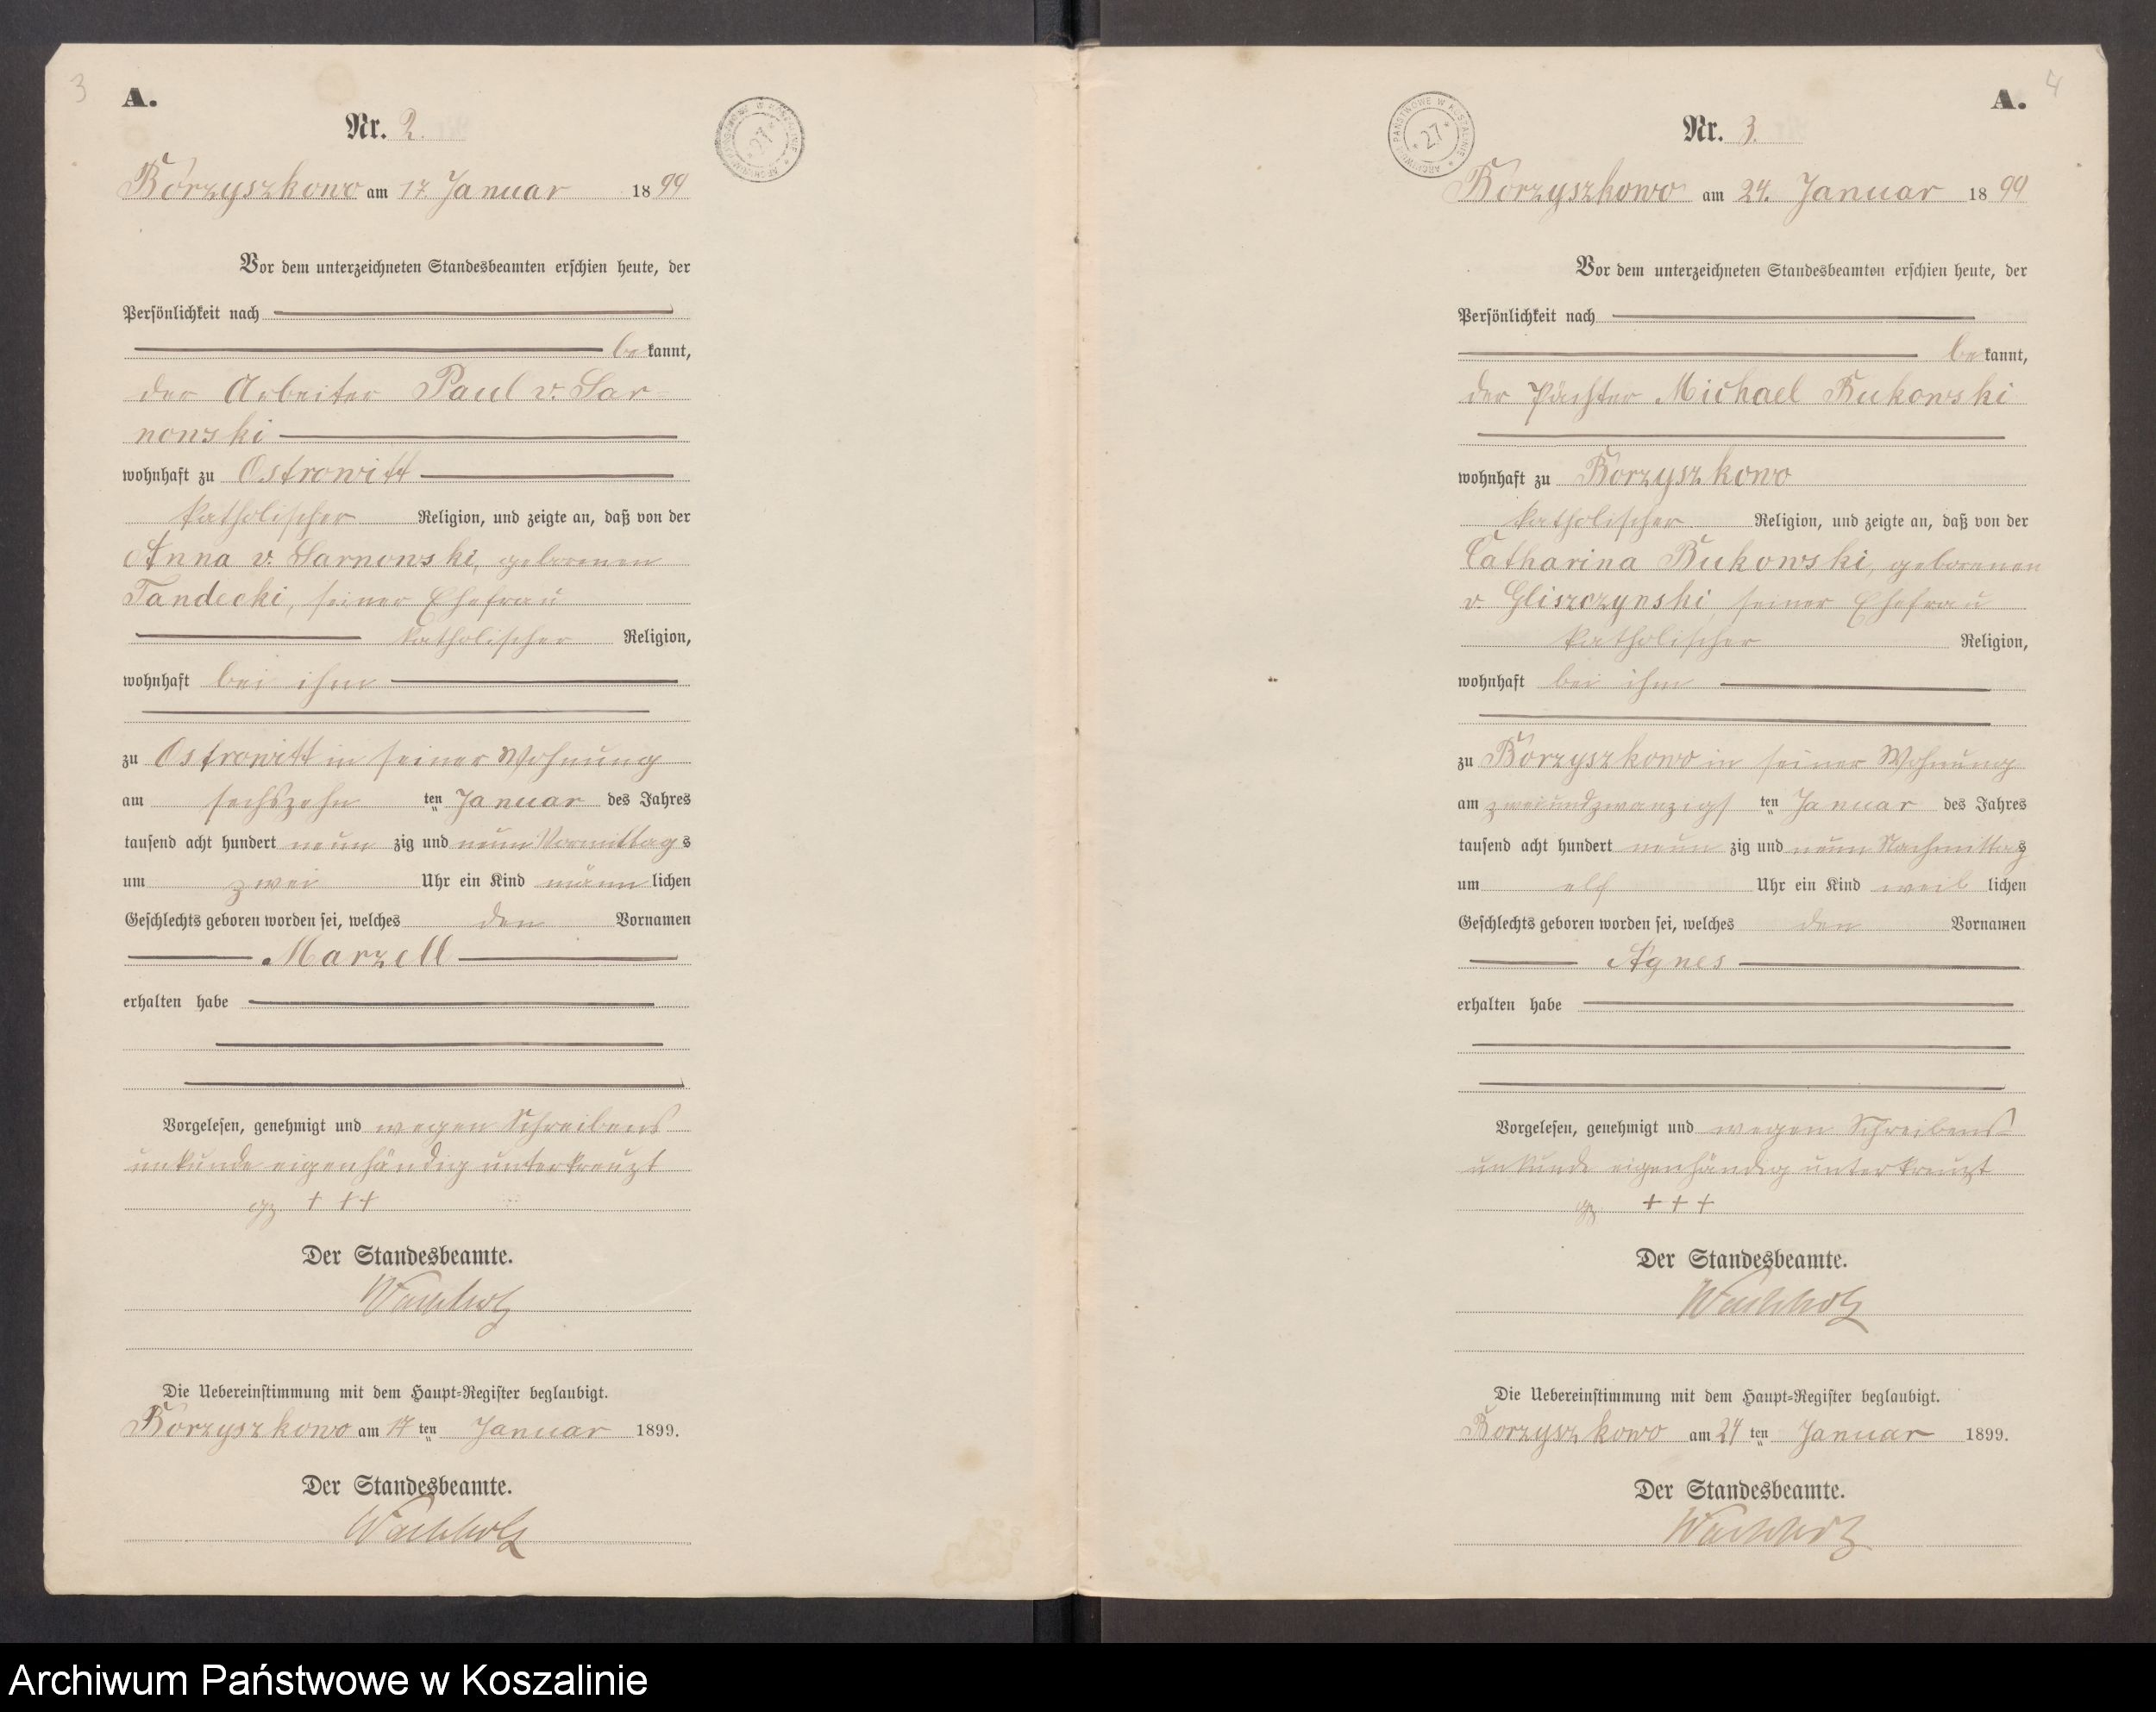 3
A.
Nr. 2.
ARCHIWUM PAŃSTWOWE W KOSZALINIE * 27 *
Borzyszkowo am 17. Januar 1899
Vor dem unterzeichneten Standesbeamten erschien heute, der
Persönlichkeit nach
bekannt,
der Arbeiter Paul v. Sar-
nowski
wohnhaft zu Ostrowitt
katholischer Religion, und zeigte an, daß von der
Anna v. Sarnowski, geborenen
Tandecki, seiner Ehefrau
katholischer Religion,
wohnhaft bei ihm
zu Ostrowitt in seiner Wohnung
am sechszehn ten Januar des Jahres
tausend acht hundert neun zig und neun Vormittags
um zwei Uhr ein Kind männlichen
Geschlechts geboren worden sei, welches den Vornamen
Marzell
erhalten habe
Vorgelesen, genehmigt und wegen Schreibens
unkunde eigenhändig unterkreuzt
gz. + + +
Der Standesbeamte.
Wachholz
Die Uebereinstimmung mit dem Haupt-Register beglaubigt.
Borzyszkowo am 17 ten Januar 1899.
Der Standesbeamte.
Wachholz
4
A.
Nr. 3.
ARCHIWUM PAŃSTWOWE W KOSZALINIE * 27 *
Borzyszkowo am 24. Januar 1899
Vor dem unterzeichneten Standesbeamten erschien heute, der
Persönlichkeit nach
bekannt,
der Pächter Michael Bukowski
wohnhaft zu Borzyszkowo
katholischer Religion, und zeigte an, daß von der
Catharina Bukowski, geborenen
v. Gliszczynski, seiner Ehefrau
katholischer Religion,
wohnhaft bei ihm
zu Borzyszkowo in seiner Wohnung
am zweiundzwanzigs ten Januar des Jahres
tausend acht hundert neun zig und neun Nachmittags
um elf Uhr ein Kind weiblichen
Geschlechts geboren worden sei, welches den Vornamen
Agnes
erhalten habe
Vorgelesen, genehmigt und wegen Schreibens-
unkunde eigenhändig unterkreuzt
gz. + + +
Der Standesbeamte.
Wachholz
Die Uebereinstimmung mit dem Haupt-Register beglaubigt.
Borzyszkowo am 24 ten Januar 1899.
Der Standesbeamte.
Wachholz
Archiwum Państwowe w Koszalinie